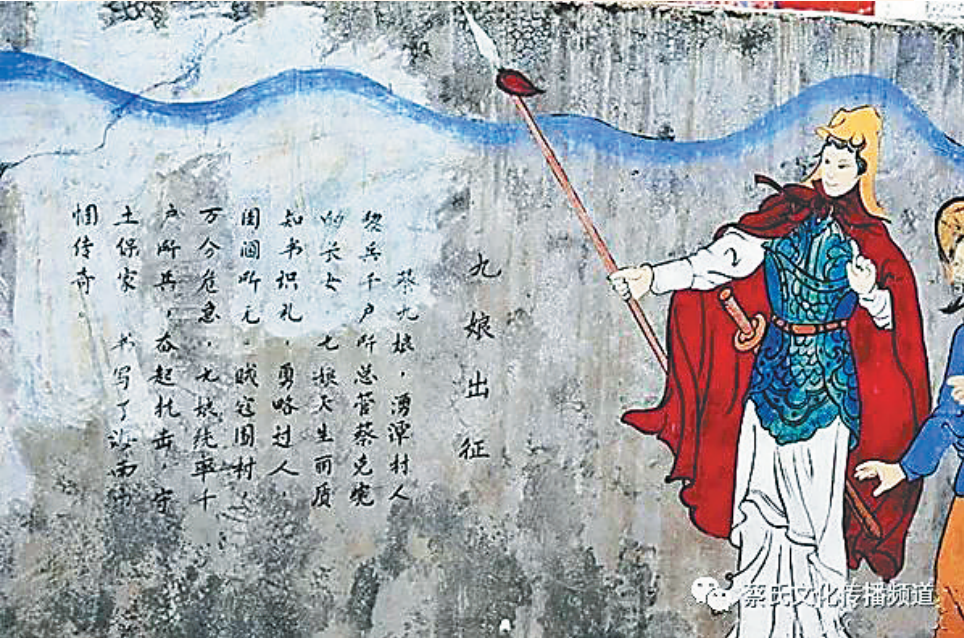 九娘出征
蔡九娘，湧潭村人
黎兵千户所总管蔡克宪
的长女 九娘天生丽质
知书识礼，勇略过人，
所无。贼寇围村，
万分危急，九娘统率千
户所兵，奋起抗击，守
土保家 书写了海南巾
帼传奇
蔡氏文化传播频道